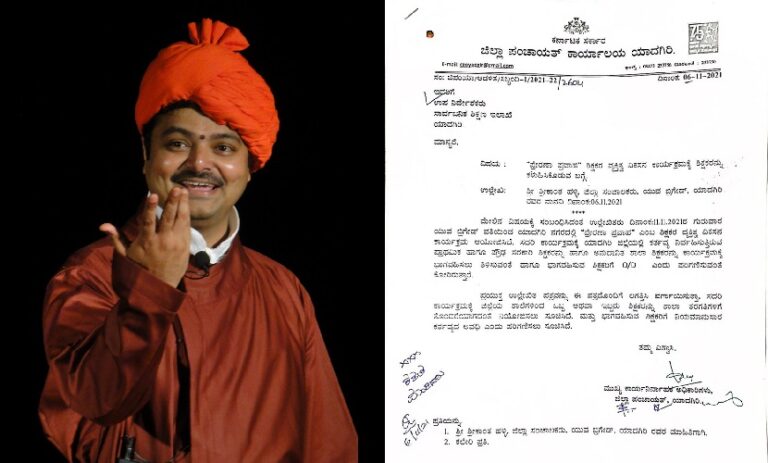 ಕರ್ನಾಟಕ ಸರ್ಕಾರ
ಜಿಲ್ಲಾ ಪಂಚಾಯತ್ ಕಾರ್ಯಾಲಯ ಯಾದಗಿರಿ.
E-mail:
ದಿನಾಂಕ: 06-11-2021
ಇವರಿಗೆ
ಉಪ ನಿರ್ದೇಶಕರು
ಸಾರ್ವಜನಿಕ ಶಿಕ್ಷಣ ಇಲಾಖೆ
ಯಾದಗಿರಿ
ಮಾನ್ಯರೆ,
ವಿಷಯ : "ಪ್ರೇರಣಾ ಪ್ರವಾಹ" ಶಿಕ್ಷಕರ ವ್ಯಕ್ತಿತ್ವ ವಿಕಸನ ಕಾರ್ಯಕ್ರಮಕ್ಕೆ ಶಿಕ್ಷಕರನ್ನು
ಕಳುಹಿಸಿಕೊಡುವ ಬಗ್ಗೆ
ಉಲ್ಲೇಖ: ಶ್ರೀ ಶ್ರೀಕಾಂತ ಹಳ್ಳಿ, ಜಿಲ್ಲಾ ಸಂಚಾಲಕರು, ಯುವ ಬ್ರಿಗೇಡ್, ಯಾದಗಿರಿ
ರವರ ಮನವಿ ದಿನಾಂಕ:06.11.2021
****
ಮೇಲಿನ ವಿಷಯಕ್ಕೆ ಸಂಬಂಧಿಸಿದಂತೆ ಉಲ್ಲೇಖಿತರು ದಿನಾಂಕ:11.11.2021ರ ಗುರುವಾರ
ಯುವ ಬ್ರಿಗೇಡ್ ವತಿಯಿಂದ ಯಾದಗಿರಿ ನಗರದಲ್ಲಿ "ಪ್ರೇರಣಾ ಪ್ರವಾಹ" ಎಂಬ ಶಿಕ್ಷಕರ ವ್ಯಕ್ತಿತ್ವ ವಿಕಸನ
ಕಾರ್ಯಕ್ರಮ ಆಯೋಜಿಸಿದೆ. ಸದರಿ ಕಾರ್ಯಕ್ರಮಕ್ಕೆ ಯಾದಗಿರಿ ಜಿಲ್ಲೆಯಲ್ಲಿ ಕರ್ತವ್ಯ ನಿರ್ವಹಿಸುತ್ತಿರುವ
ಪ್ರಾಥಮಿಕ ಹಾಗೂ ಪ್ರೌಢ ಸರಕಾರಿ ಶಿಕ್ಷಕರನ್ನು ಹಾಗೂ ಅನುದಾನಿತ ಶಾಲಾ ಶಿಕ್ಷಕರನ್ನು ಕಾರ್ಯಕ್ರಮಕ್ಕೆ
ಭಾಗವಹಿಸಲು ತಿಳಿಸುವಂತೆ ಹಾಗೂ ಭಾಗವಹಿಸುವ ಶಿಕ್ಷಕರಿಗೆ O/O ಎಂದು ಪರಿಗಣಿಸುವಂತೆ
ಕೋರಿರುತ್ತಾರೆ.
ಪ್ರಯುಕ್ತ ಉಲ್ಲೇಖಿತ ಪತ್ರವನ್ನು ಈ ಪತ್ರದೊಂದಿಗೆ ಲಗತ್ತಿಸಿ ವರ್ಗಾಯಿಸುತ್ತಾ, ಸದರಿ
ಕಾರ್ಯಕ್ರಮಕ್ಕೆ ಜಿಲ್ಲೆಯ ಶಾಲೆಗಳಿಂದ ಒಬ್ಬ ಅಥವಾ ಇಬ್ಬರು ಶಿಕ್ಷಕರನ್ನು ಶಾಲಾ ತರಗತಿಗಳಿಗೆ
ನಿಯೋಜಿಸಲು ಸೂಚಿಸಿದೆ. ಮತ್ತು ಭಾಗವಹಿಸುವ ಶಿಕ್ಷಕರಿಗೆ ನಿಯಮಾನುಸಾರ
ಕರ್ತವ್ಯದ ಅವಧಿ ಎಂದು ಪರಿಗಣಿಸಲು ಸೂಚಿಸಿದೆ.
ತಮ್ಮ ವಿಶ್ವಾಸಿ,
ಮುಖ್ಯ ಕಾರ್ಯನಿರ್ವಾಹಕ ಅಧಿಕಾರಿಗಳು,
ಜಿಲ್ಲಾ ಪಂಚಾಯತ್, ಯಾದಗಿರಿ.
ಪ್ರತಿಯನ್ನು,
1. ಶ್ರೀ ಶ್ರೀಕಾಂತ ಹಳ್ಳಿ, ಜಿಲ್ಲಾ ಸಂಚಾಲಕರು, ಯುವ ಬ್ರಿಗೇಡ್, ಯಾದಗಿರಿ ರವರ ಮಾಹಿತಿಗಾಗಿ.
2. ಕಛೇರಿ ಪ್ರತಿ.